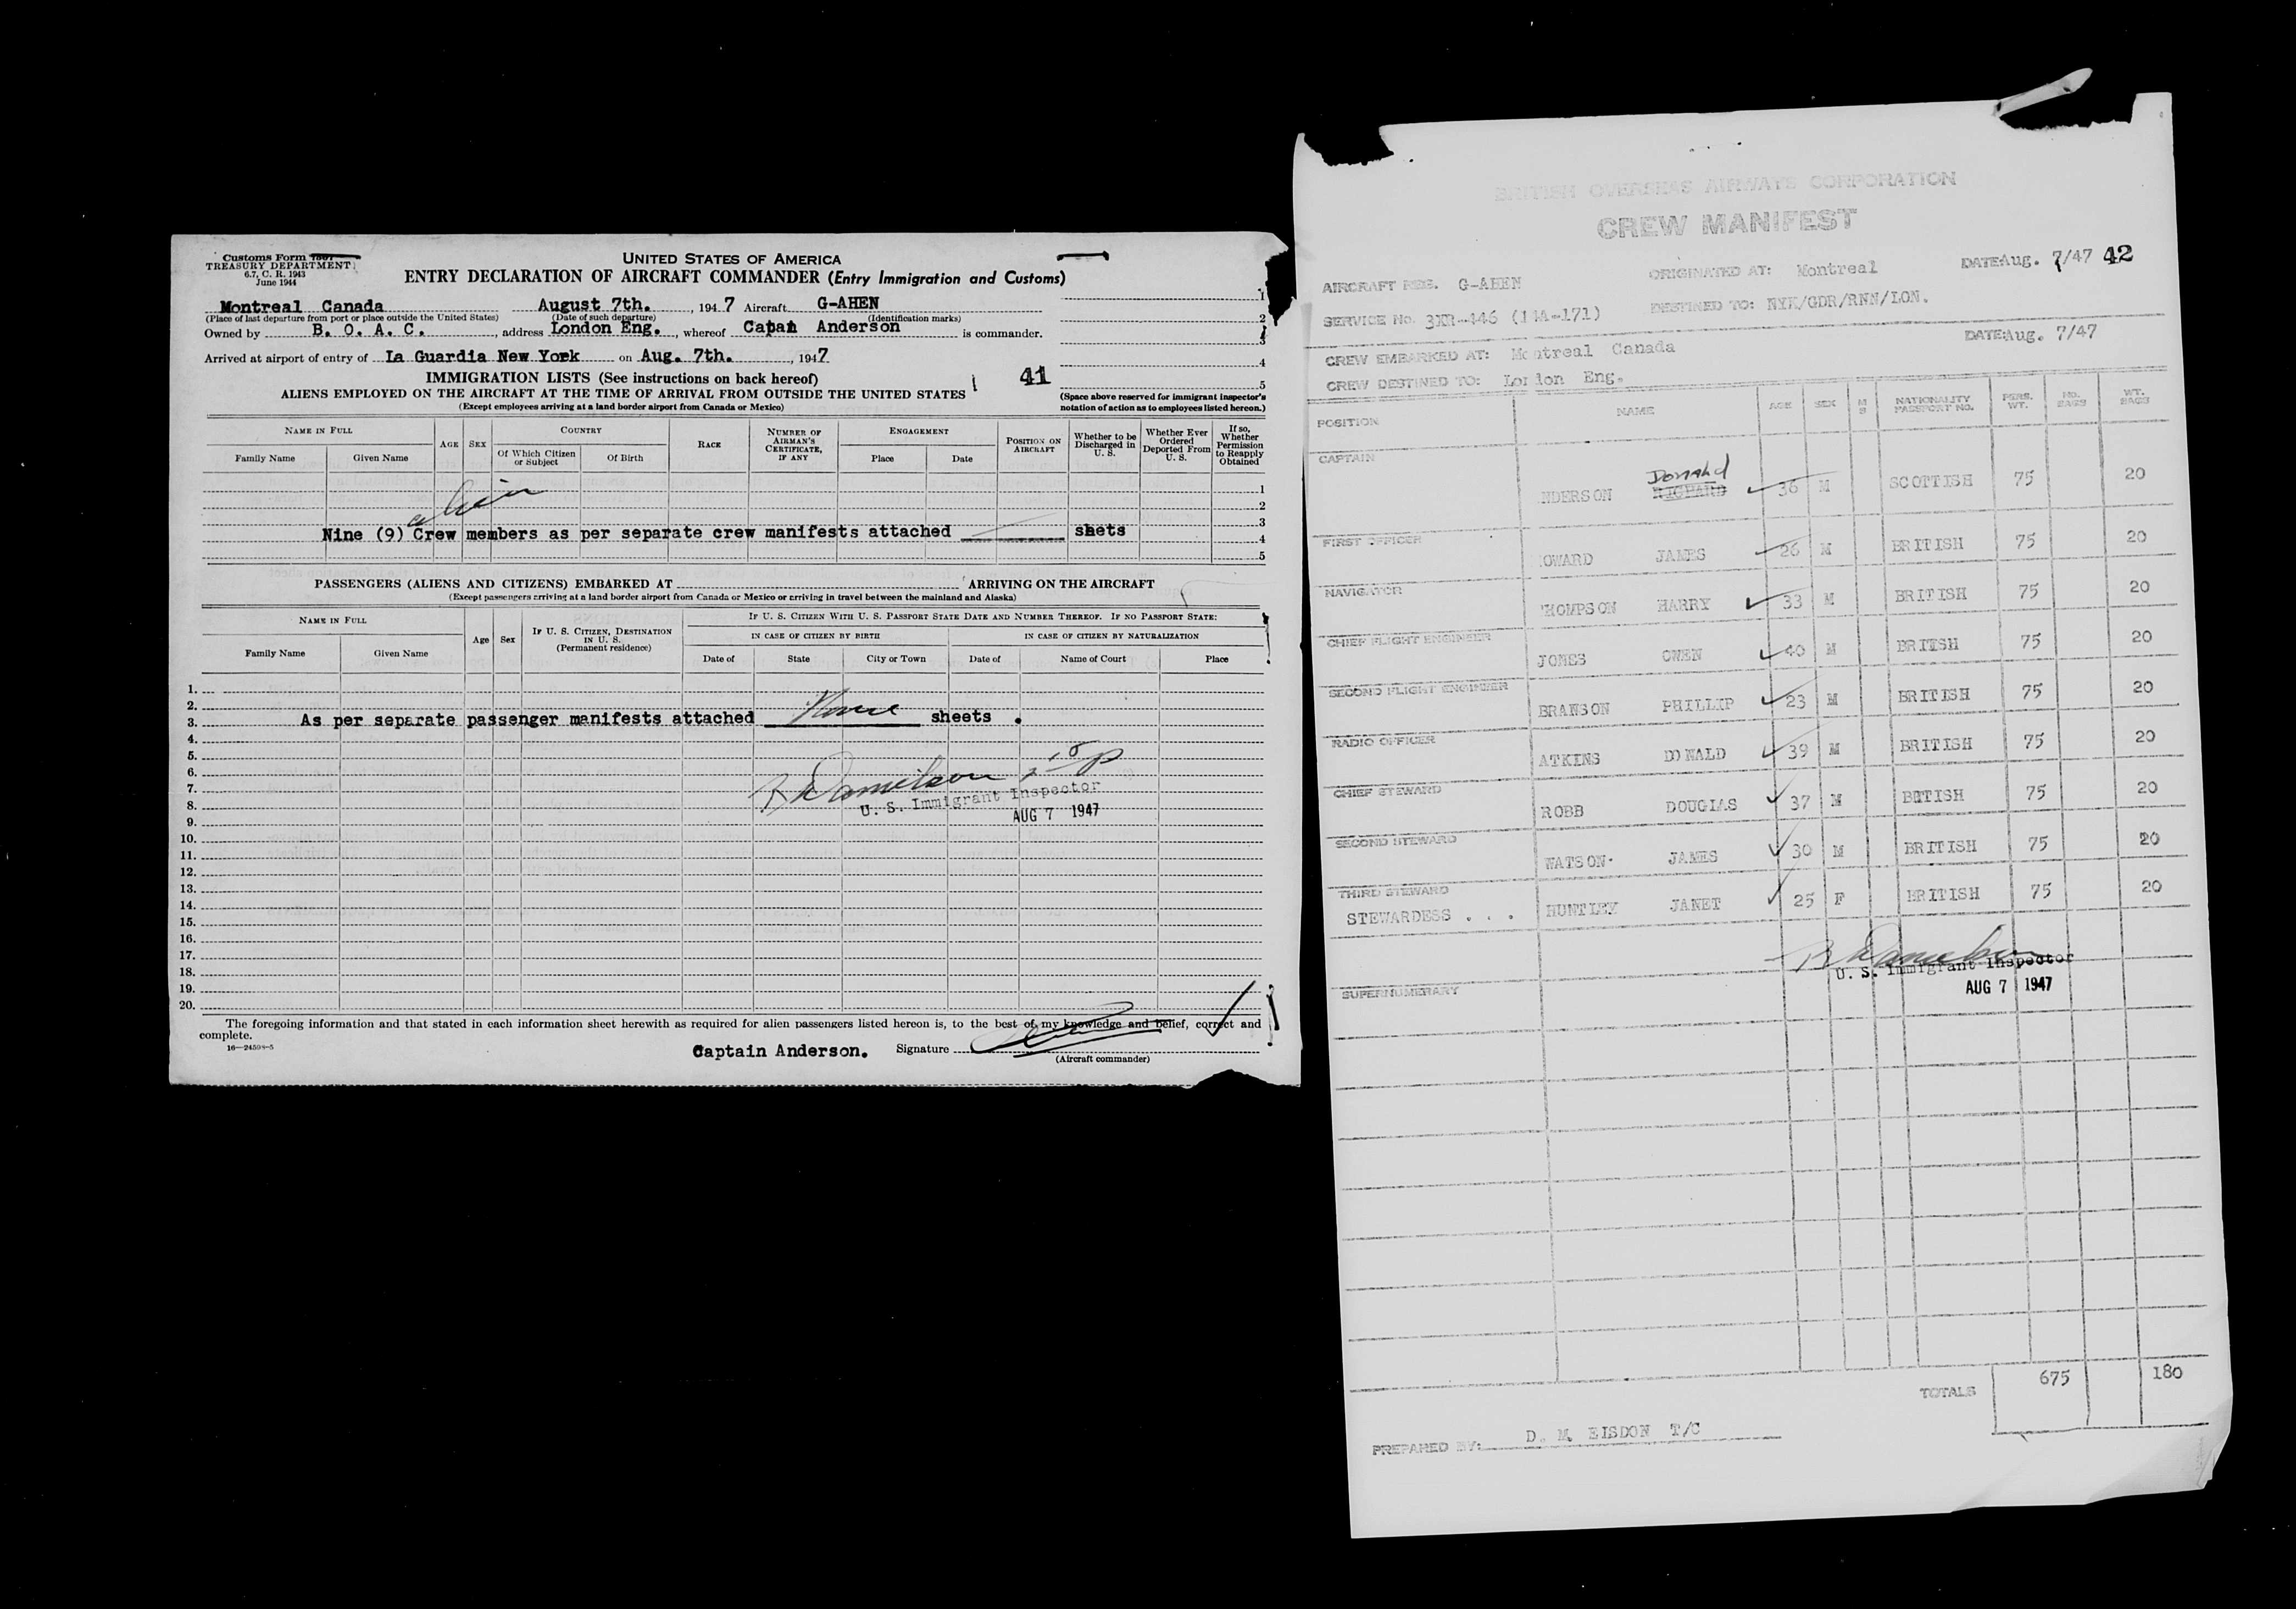 Customs Form
TREASURY DEPARTMENT
6.7, C. R. 1943
June 1944
UNITED STATES OF AMERICA
ENTRY DECLARATION OF AIRCRAFT COMMANDER (Entry Immigration and Customs)
Montreal Canada August 7th. , 1947 Aircraft G-AHEN
(Place of last departure from port or place outside the United States) (Date of such departure) (Identification marks)
Owned by B. O. A. C. , address London Eng. , whereof Anderson is commander.
Arrived at airport of entry of La Guardia New York on Aug. 7th. , 1947
1
2
3
4
5
IMMIGRATION LISTS (See instructions on back hereof) 41
ALIENS EMPLOYED ON THE AIRCRAFT AT THE TIME OF ARRIVAL FROM OUTSIDE THE UNITED STATES
(Except employees arriving at a land border airport from Canada or Mexico)
(Space above reserved for immigrant inspector's
notation of action as to employees listed hereon.)
NAME IN FULL
Family Name Given Name
AGE SEX
COUNTRY
Of Which Citizen or Subject Of Birth
RACE
NUMBER OF AIRMAN'S CERTIFICATE, IF ANY
ENGAGEMENT
Place Date
POSITION ON AIRCRAFT
Whether to be Discharged in U. S.
Whether Ever Ordered Deported From U. S.
If so, Whether Permission to Reapply Obtained
1
2
alien
3
Nine (9) Crew members as per separate crew manifests attached shets
4
5
PASSENGERS (ALIENS AND CITIZENS) EMBARKED AT ARRIVING ON THE AIRCRAFT
(Except passengers arriving at a land border airport from Canada or Mexico or arriving in travel between the mainland and Alaska)
NAME IN FULL
Family Name Given Name
Age Sex
IF U. S. CITIZEN, DESTINATION IN U. S.
(Permanent residence)
IF U. S. CITIZEN WITH U. S. PASSPORT STATE DATE AND NUMBER THEREOF. IF NO PASSPORT STATE:
IN CASE OF CITIZEN BY BIRTH IN CASE OF CITIZEN BY NATURALIZATION
Date of State City or Town Date of Name of Court Place
1.
2.
3. As per separate passenger manifests attached None sheets .
4.
5.
6.
7. R Danielson
8. U. S. Immigrant Inspector
9. AUG 7 1947
10.
11.
12.
13.
14.
15.
16.
17.
18.
19.
20.
The foregoing information and that stated in each information sheet herewith as required for alien passengers listed hereon is, to the best of my knowledge and belief, correct and
complete.
16—24598-5
Captain Anderson. Signature
(Aircraft commander)
BRITISH OVERSEAS AIRWAYS CORPORATION
CREW MANIFEST
AIRCRAFT REG. G-AHEN ORIGINATED AT: Montreal DATE: Aug. 7/47 42
SERVICE No. 3XR-446 DESTINED TO: NYK/GDR/RNN/LON.
CREW EMBARKED AT: Montreal Canada DATE: Aug. 7/47
CREW DESTINED TO: London Eng.
POSITION NAME AGE SEX M S NATIONALITY PASSPORT NO. PERS. WT. NO. BAGS WT. BAGS
CAPTAIN
Donald
NDERSON RICHARD 36 M SCOTTISH 75 20
FIRST OFFICER
OWARD JAMES 26 M BRITISH 75 20
NAVIGATOR
HOMPSON HARRY 33 M BRITISH 75 20
CHIEF FLIGHT ENGINEER
JONES OWEN 40 M BRITSH 75 20
SECOND FLIGHT ENGINEER
BRANSON PHILLIP 23 M BRITISH 75 20
RADIO OFFICER
ATKINS DONALD 39 M BRITISH 75 20
CHIEF STEWARD
ROBB DOUGLAS 37 M 75 20
SECOND STEWARD
WATSON JAMES 30 M BRITISH 75 20
THIRD STEWARD
STEWARDESS . . . HUNTLEY JANET 25 F BRITISH 75 20
R Danielson
U. S. Immigrant Inspector
SUPERNUMERARY AUG 7 1947
TOTALS 675 180
PREPARED BY: D. M. EISDON T/C